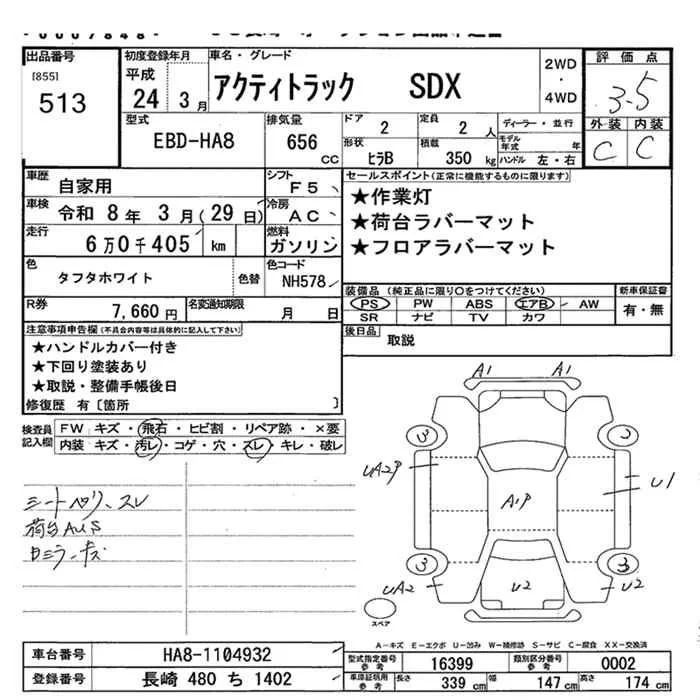 出品番号 初度登録年月 車名・グレード 2WD・4WD 評価点
[855] 513 平成 24 3月 アクティトラック SDX 3.5
型式 EBD-HA8 排気量 656 CC ドア 2 定員 2人 ディーラー・並行 外装 内装
形状 ヒラB 積載 350kg モデル年式 年 ハンドル 左・右 C C
車歴 自家用 シフト F5 セールスポイント(正常に機能するものに限ります)
車検 令和 8年 3月(29日) 冷房 AC ★作業灯
★荷台ラバーマット
走行 6万0千405 km 燃料 ガソリン ★フロアラバーマット
色 タフタホワイト 色替 色コード NH578
装備品(純正品に限り○をつけてください) 新車保証書
PS PW ABS エアB AW 有・無
SR ナビ TV カワ
R券 7,660円 名変通知期限 月 日
後日品 取説
注意事項申告欄(不具合内容等は具体的に記入して下さい)
★ハンドルカバー付き
★下回り塗装あり
★取説・整備手帳後日
修復歴 有〔箇所 〕
検査員記入欄 FW キズ・飛石・ヒビ割・リペア跡・×要
内装 キズ・汚レ・コゲ・穴・スレ・キレ・破レ
荷台AUS
A1 A1
3 3
UA2P A1P U1
3 3
UA2 U2 U2
スペア
A-キズ E-エクボ U-凹み W-補修跡 S-サビ C-腐食 XX-交換済
車台番号 HA8-1104932 型式指定番号 参考 16399 類別区分番号 参考 0002
登録番号 長崎 480 ち 1402 車庫証明用 参考 長さ 339cm 幅 147cm 高さ 174cm